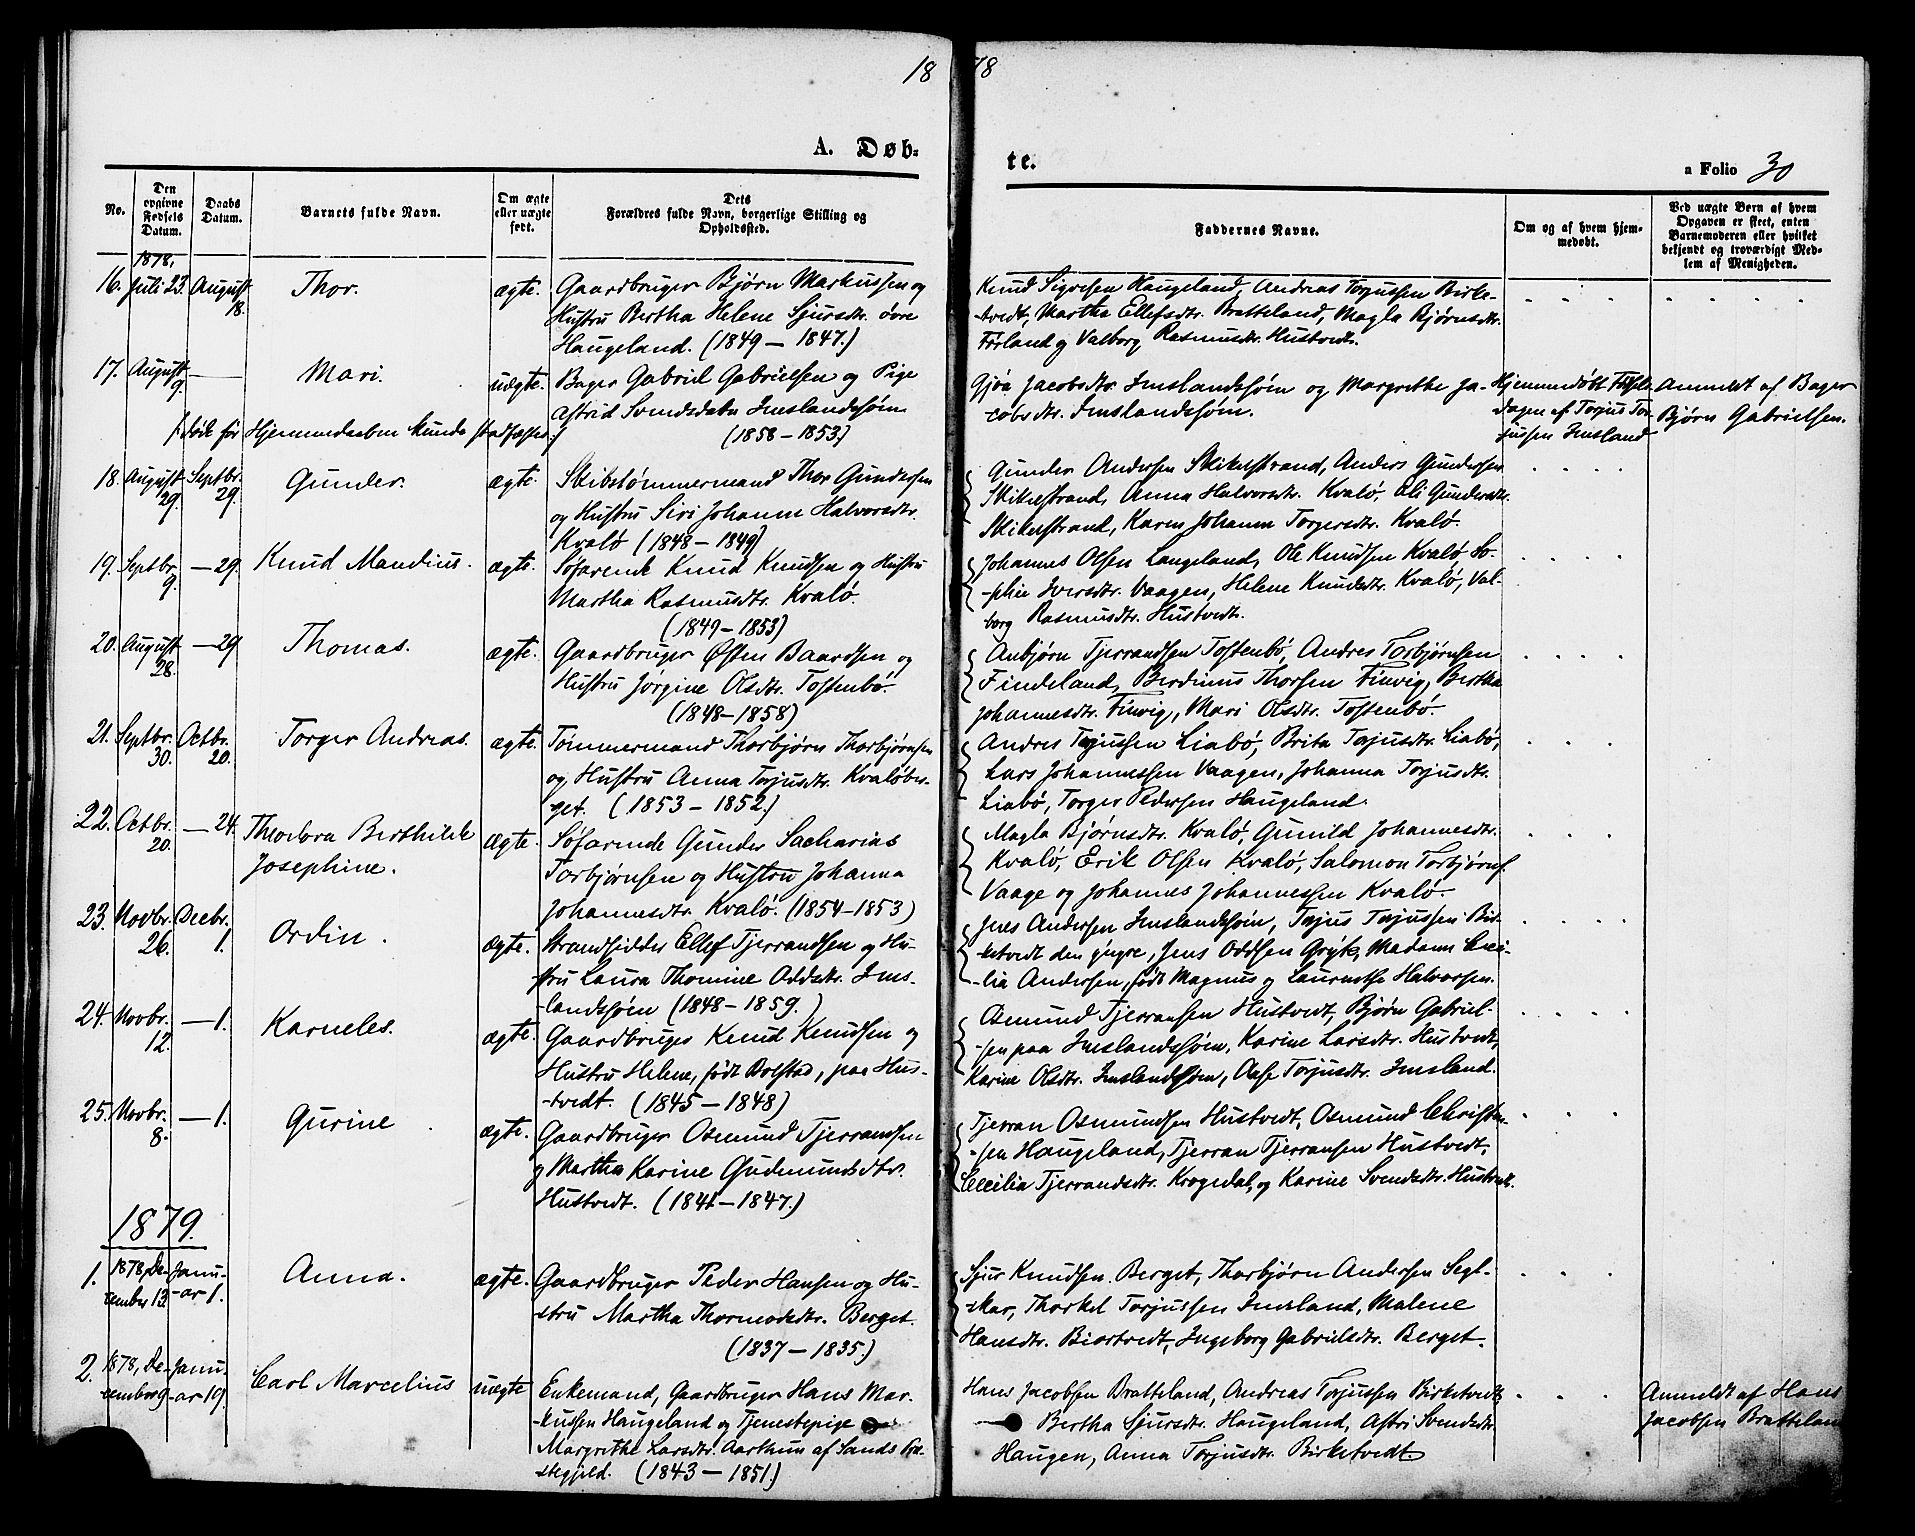 1878
A. Døb-
te.
a Folio 30
No.
Den opgivne Fødsels Datum.
Daabs Datum.
Barnets fulde Navn.
Om ægte eller uægte født.
Dets Forældres fulde Navn, borgerlige Stilling og Opholdssted.
Faddernes Navne.
Om og af hvem hjem-
medøbt.
Ved uægte Børn af hvem
Opgaven er skeet, enten
Barnemoderen eller hvilket
bekjendt og troværdigt Med-
lem af Menigheden.
1878.
16. Juli 23. August 18. Thor. ægte.
Gaardbruger Bjørn Markussen og
Hustru Bertha Helene Sjursdtr. øvre
Haugeland. (1849 – 1847.)
Knud Sigvesen Haugeland, Andreas Torjussen Birke-
-tvedt, Martha Ellefsdtr. Bratteland, Magla Bjørnsdtr.
Førland og Valborg Rasmusdtr. Hustvedt.
17. August 9. — Mari. uægte.
Bager Gabriel Gabrielsen og Pige
Astrid Svendsdatr Imslandssøen
(1858 – 1853.)
(døde før Hjemmedaaben kunde stadfæstes.)
Gjøa Jacobsdtr. Imslandssøen og Margrethe Ja-
cobsdtr. Imslandssøen.
Hjemmedøbt Fødsels-
dagen af Torjus Tor-
jussen Imsland
Anmeldt af Bager
Bjørn Gabrielsen.
18. August 29. Septbr. 29. Gunder. ægte.
Skibstømmermand Thor Gundersen
og Hustru Siri Johanne Halvorsdtr.
Kvalø (1848 – 1849)
Gunder Andersen Skikelstrand, Anders Gundersen
Skikelstrand, Anna Halvorsdtr. Kvalø, Eli Gundersdtr.
Skikelstrand, Karen Johanne Torgersdtr. Kvalø.
19. Septbr. 9. — 29. Knud Mandius. ægte.
Søfarende Knud Knudsen og Hustru
Martha Rasmusdtr. Kvalø.
(1849 – 1853)
Johannes Olsen Langeland, Ole Knudsen Kvalø, So-
-phie Iversdtr. Vaagen, Helene Knudsdtr. Kvalø, Val-
borg Rasmusdtr. Hustvedt.
20. August 28. — 29 Thomas. ægte.
Gaardbruger Østen Baardsen og
Hustru Jørgine Olsdtr. Tostenbø.
(1848 – 1858)
Anbjørn Tjerrandsen Tostenbø, Andres Torbjørnsen
Findeland, Berdinus Thorsen Finvig, Bertha
Johannesdtr. Finvig, Mari Olsdtr. Tostenbø.
21. Septbr. 30. Octbr. 20. Torger Andreas. ægte.
Tømmermand Thorbjørn Thorbjørnsen
og Hustru Anna Torjusdtr. Kvaløber-
-get. (1853 – 1852.)
Andres Torjussen Liabø, Brita Torjusdtr. Liabø,
Lars Johannessen Vaagen, Johanna Torjusdtr.
Liabø, Torger Pedersen Haugeland.
22. Octbr. 20. — 24. Theodora Berthilde
Josephine. ægte.
Søfarende Gunder Sacharias
Torbjørnsen og Hustru Johanna
Johannesdtr Kvalø. (1854 – 1853)
Magla Bjørnsdtr. Kvalø, Gunild Johannesdtr.
Kvalø, Erik Olsen Kvalø, Salomon Torbjørns.
Vaage og Johannes Johannessen Kvalø.
23. Novbr. 26. Decbr. 1. Ordin. ægte.
Strandsidder Ellef Tjerrandsen og Hu-
stru Laura Thomine Oddsdtr. Ims-
-landssøen (1848 – 1859.)
Jens Andersen Imslandssøen, Torjus Torjussen Bir-
-ketvedt den yngre, Jens Oddsen Gryte, Madame Ceci-
-lia Andersen, født Magnus og Laurentse Halvorsen.
24. Novbr. 12. — 1. Karneles. ægte.
Gaardbruger Knud Knudsen og
Hustru Helene, født Bolstad, paa Hus-
-tvedt. (1845 – 1848)
Osmund Tjerransen Hustvedt, Bjørn Gabriel-
-sen paa Imslandssøen, Karine Larsdtr. Hustvedt,
Karine Olsdtr. Imslandssøen, Aase Torjusdtr. Imsland.
25. Novbr. 8. — 1. Gurine. ægte.
Gaardbruger Osmund Tjerrandsen
og Martha Karine Gudmundsdtr.
Hustvedt. (1841 – 1847.)
Tjerran Osmundsen Hustvedt, Osmund Christen-
-sen Haugeland, Tjerran Tjerransen Hustvedt,
Cecilia Tjerrandsdtr. Krogedal, og Karine Svendsdtr. Hustvedt.
1879.
1. 1878, De-
cember 13. Janu-
-ar 1. Anna. ægte.
Gaardbruger Peder Hansen og Hu-
-stru Martha Thormodsdtr. Berget.
(1837 – 1835.)
Sjur Knudsen Berget, Thorbjørn Andersen Segl-
-skar, Thorkel Torjussen Imsland, Malene
Hansdtr. Biortvedt, Ingeborg Gabrielsdtr. Berget.
2. 1878, De-
cember 9. Janu-
-ar 19. Carl Marcelius uægte
Enkemand, Gaardbruger Hans Mar-
-kussen Haugeland og Tjenestepige
Margrethe Larsdtr. Aarthun af Sands Præ-
stegjeld. (1843 – 1851.)
Hans Jacobsen Bratteland, Andreas Torjussen Birketvedt
Bertha Sjursdtr. Haugeland, Astri Svendsdtr.
Haugen, Anna Torjusdtr. Birketvedt.
Anmeldt af Hans
Jacobsen Bratteland